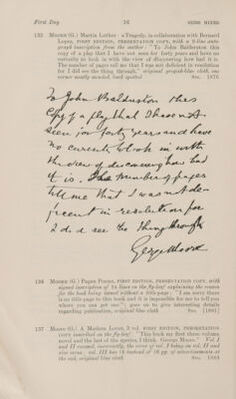 First Day 16 8VO 10 MOORE
135 MOORE (G.) Martin Luther: a Tragedy, in collaboration with Bernard
Lopez, FIRST EDITION, PRESENTATION COPY, with a 9-line auto-
graph inscription from the author: "To John Balderston this
copy of a play that I have not seen for forty years and have no
curiosity to look in with the view of discovering how bad it is.
The number of pages tell me that I was not deficient in resolution
for I did see the thing through," original greyish-blue cloth, one
corner mostly mended, back spotted 8vo. 1879
To John Balderston this
copy of a play that I have not
seen for forty years and have
no curiosity to look in with
the view of discovering how bad
it is. The number of pages
tell me that I was not de-
ficient in resolution for
I did see the thing through
George Moore
136 MOORE (G.) Pagan Poems, FIRST EDITION, PRESENTATION COPY, with
signed inscription of 14 lines on the fly-leaf explaining the reason
for the book being issued without a title-page: "I am sorry there
is no title page to this book and it is impossible for me to tell you
where you can get one"; goes on to give interesting details
regarding publication, original blue cloth 8vo. [1881]
137 MOORE (G.) A Modern Lover, 3 vol. FIRST EDITION, PRESENTATION
COPY inscribed on the fly-leaf: "This book my first three volume
novel and the last of the species, I think. George Moore." Vol. I
and II recased,
original blue cloth 8vo. 1883